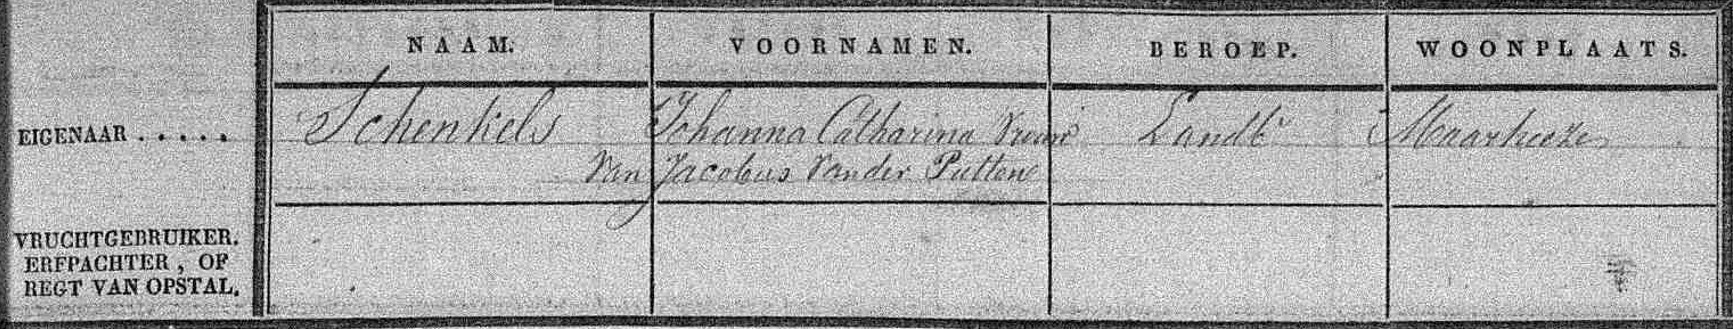 NAAM. VOORNAMEN. BEROEP. WOONPLAATS.
EIGENAAR . . . . . Schenkels Johanna Catharina Vrouw Landbr Maarheeze
Van Jacobus Vander Putten
VRUCHTGEBRUIKER.
ERFPACHTER, OF
REGT VAN OPSTAL.